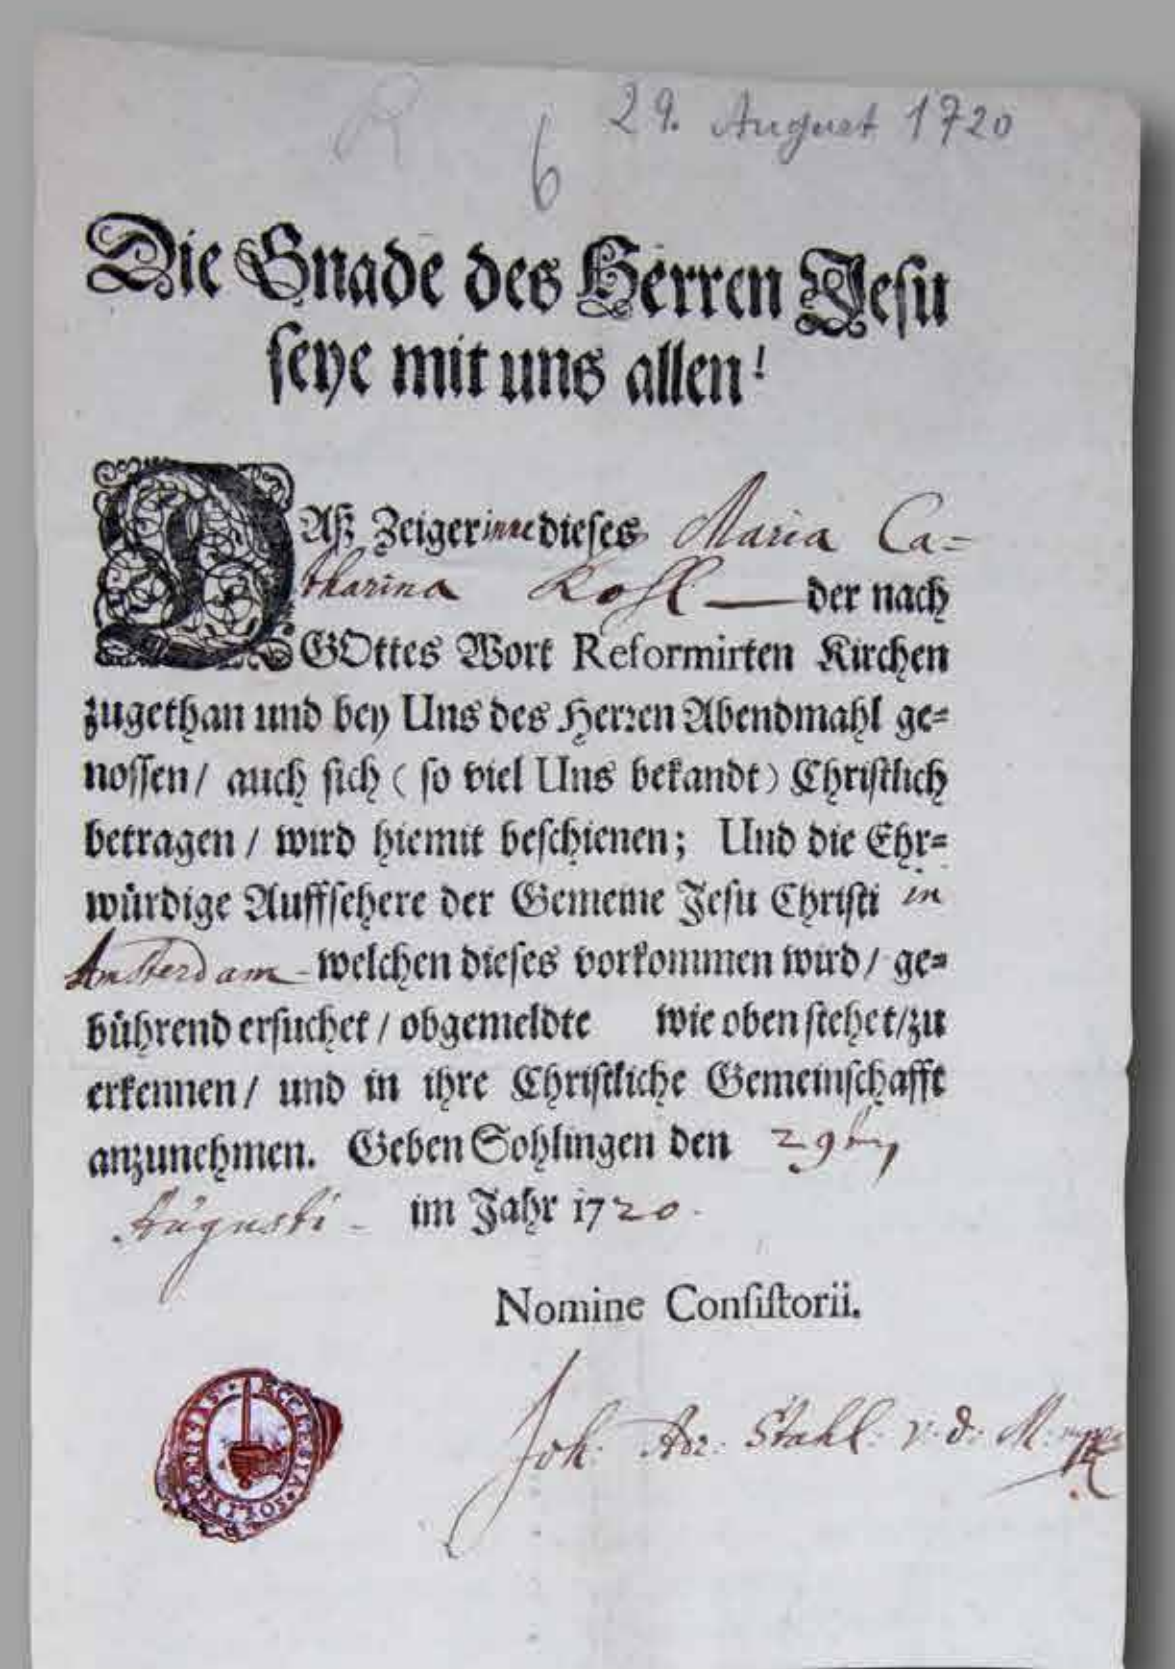 29. August 1720
6
Die Gnade des Herren Jesu
seye mit uns allen!
DAß Zeigerinne dieses Maria Ca=
tharina der nach
GOttes Wort Reformirten Kirchen
zugethan und bey Uns des Herren Abendmahl ge=
nossen / auch sich ( so viel Uns bekandt ) Christlich
betragen / wird hiemit beschienen; Und die Ehr=
würdige Auffsehere der Gemeine Jesu Christi in
Amsterdam - welchen dieses vorkommen wird / ge=
bührend ersuchet / obgemeldte wie oben stehet / zu
erkennen / und in ihre Christliche Gemeinschafft
anzunehmen. Geben Sohlingen den 29ten
Augusti - im Jahr 1720.
Nomine Consistorii.
ECCLESIA · SOLINGENSIS ·
Joh: Adr: Stahl: v. d. M.